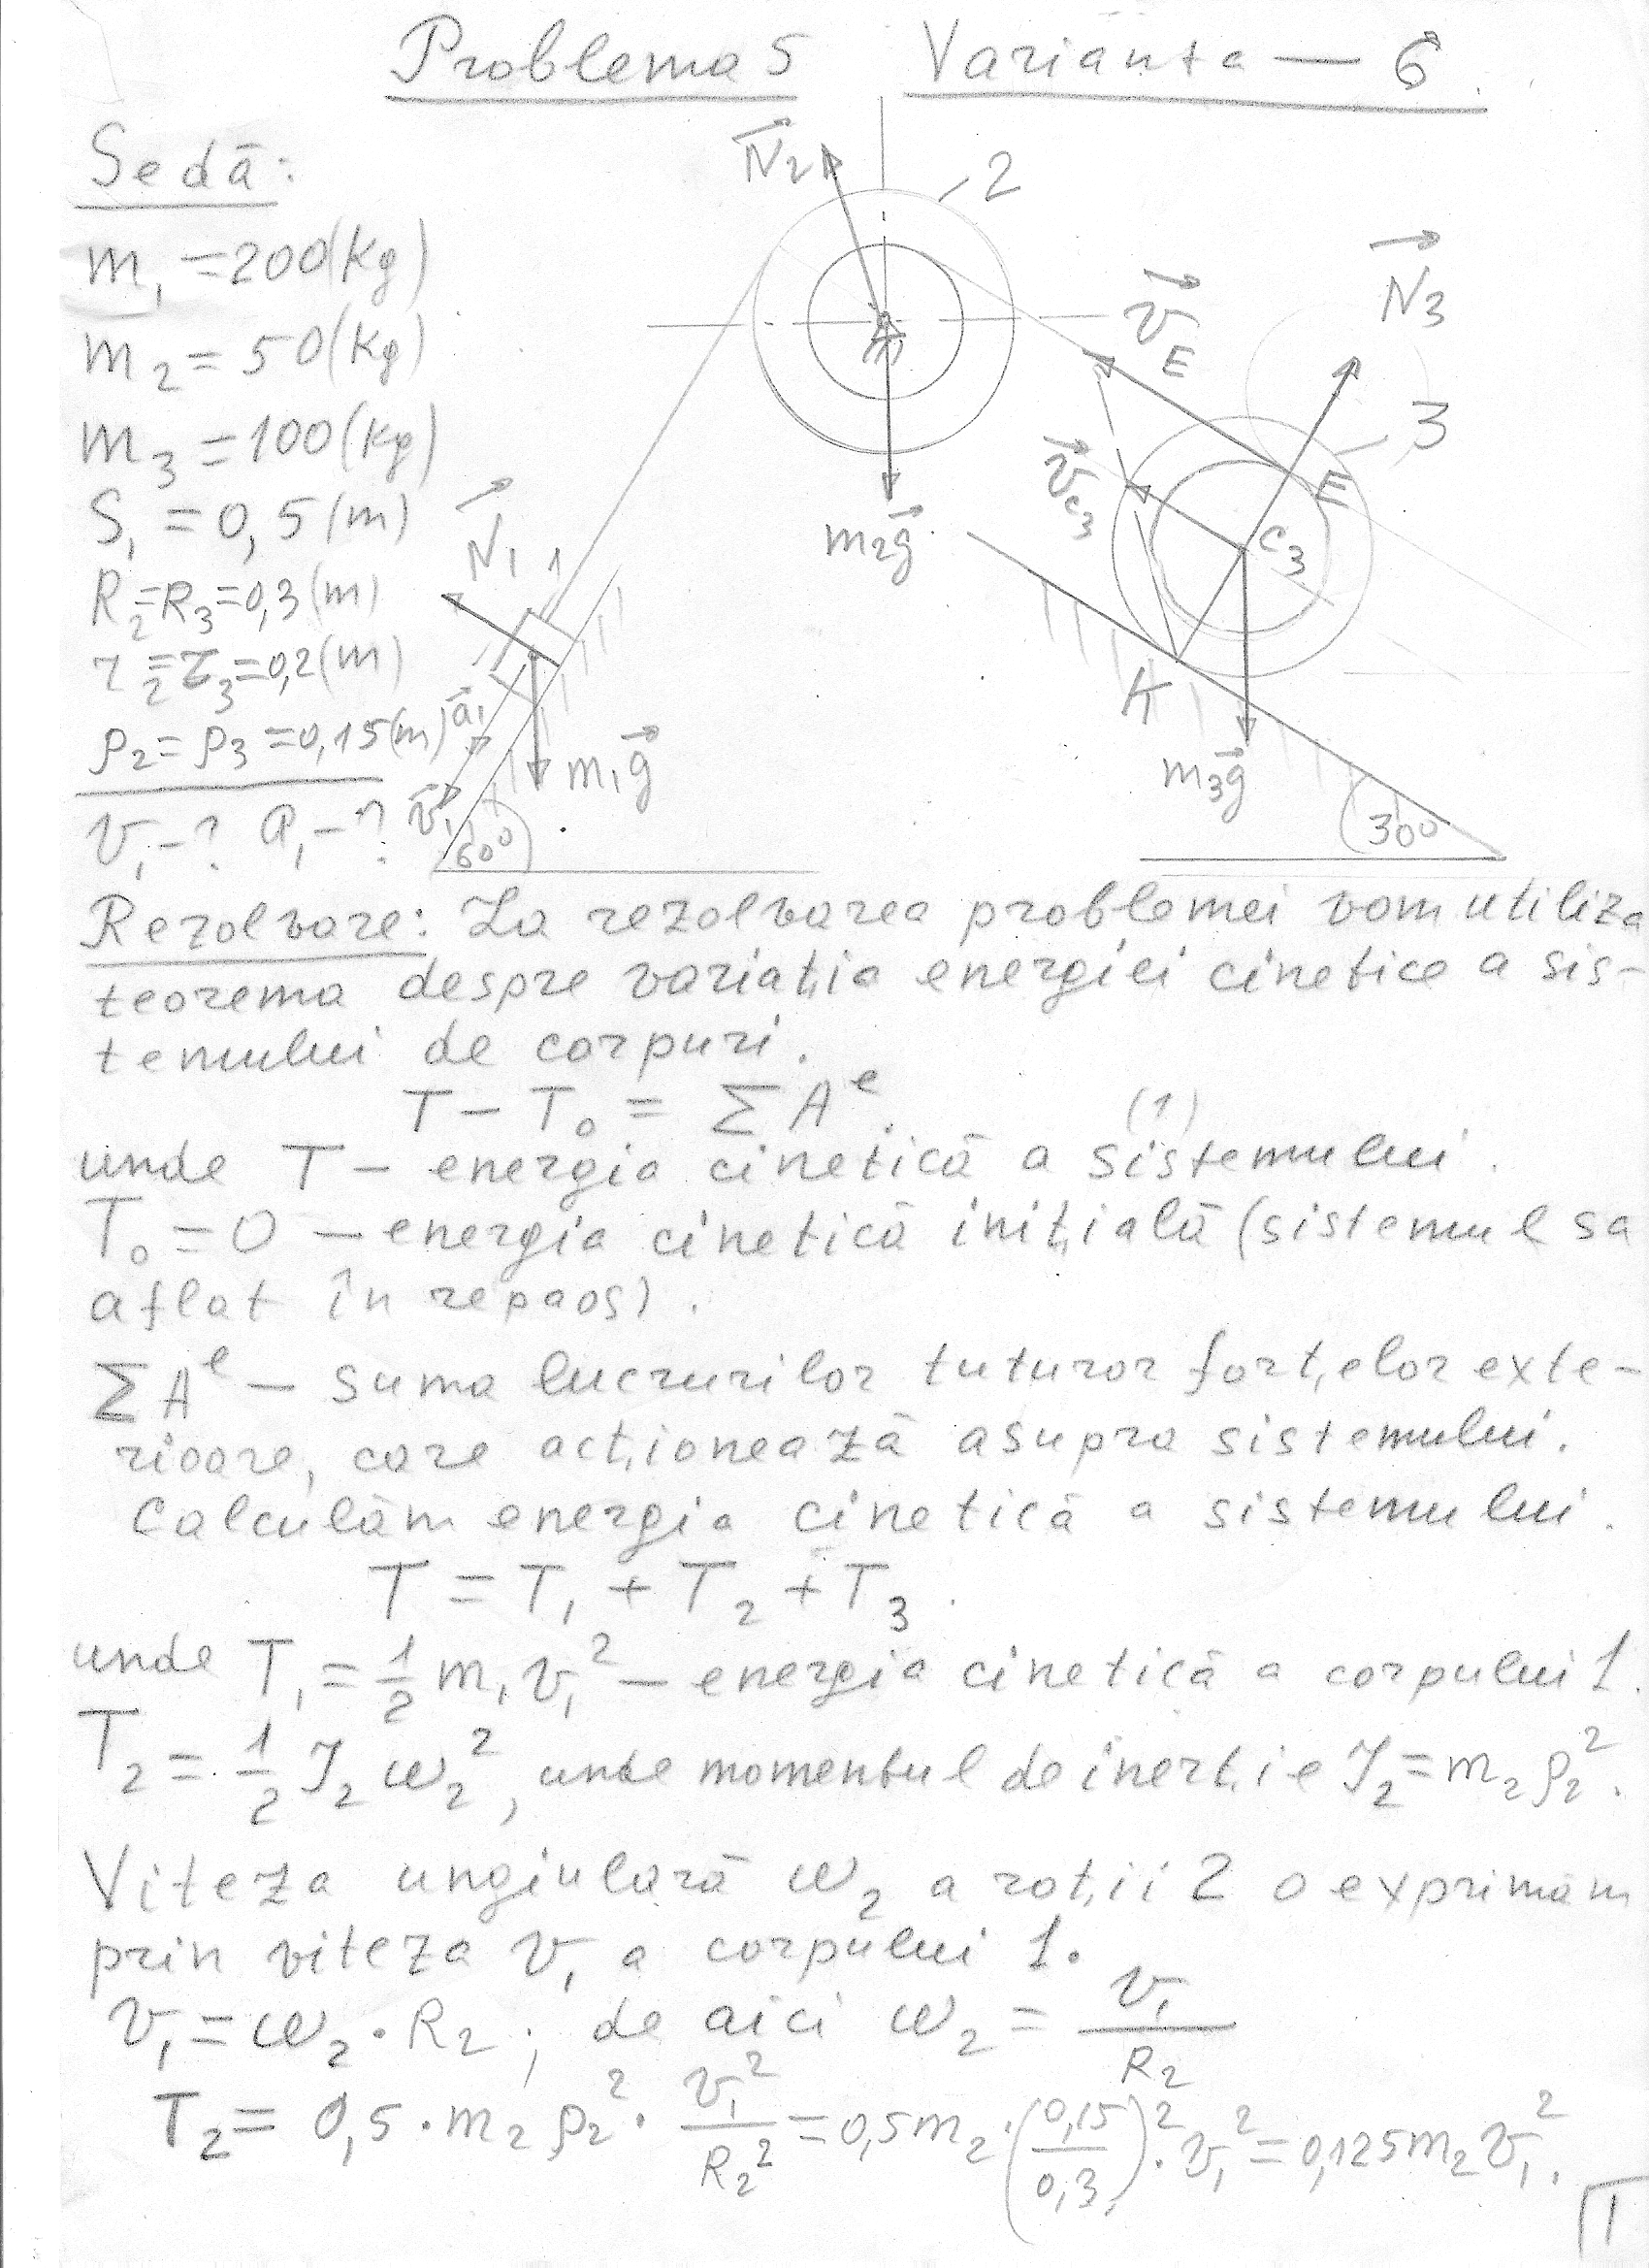 Problema 5 Varianta — 6
Se dă:
m₁ = 200(kg)
m₂ = 50(kg)
m₃ = 100(kg)
S₁ = 0,5(m)
R₂=R₃=0,3(m)
r₂=r₃=0,2(m)
ρ₂=ρ₃=0,15(m)
v₁-? a₁-?
N₂
2
N₃
v_E
3
E
v_c₃
c₃
m₂g
N₁
1
a₁
v₁
m₁g
K
m₃g
60°
30°
Rezolvare: La rezolvarea problemei vom utiliza
teorema despre variația energiei cinetice a sis-
temului de corpuri.
T – T₀ = ∑ Aᵉ. (1)
unde T – energia cinetică a sistemului.
T₀ = 0 – energia cinetică inițială (sistemul sa
aflat în repaos).
∑ Aᵉ – suma lucrurilor tuturor forțelor exte-
rioare, care acționează asupra sistemului.
Calculăm energia cinetică a sistemului.
T = T₁ + T₂ + T₃.
unde T₁ = 1/2 m₁ v₁² – energia cinetică a corpului 1.
T₂ = 1/2 J₂ ω₂², unde momentul de inerție J₂ = m₂ρ₂².
Viteza unghiulară ω₂ a roții 2 o exprimăm
prin viteza v₁ a corpului 1.
v₁ = ω₂ · R₂ ; de aici ω₂ = v₁/R₂
T₂ = 0,5 · m₂ρ₂² · v₁²/R₂² = 0,5m₂ · (0,15/0,3)² · v₁² = 0,125m₂v₁².
1